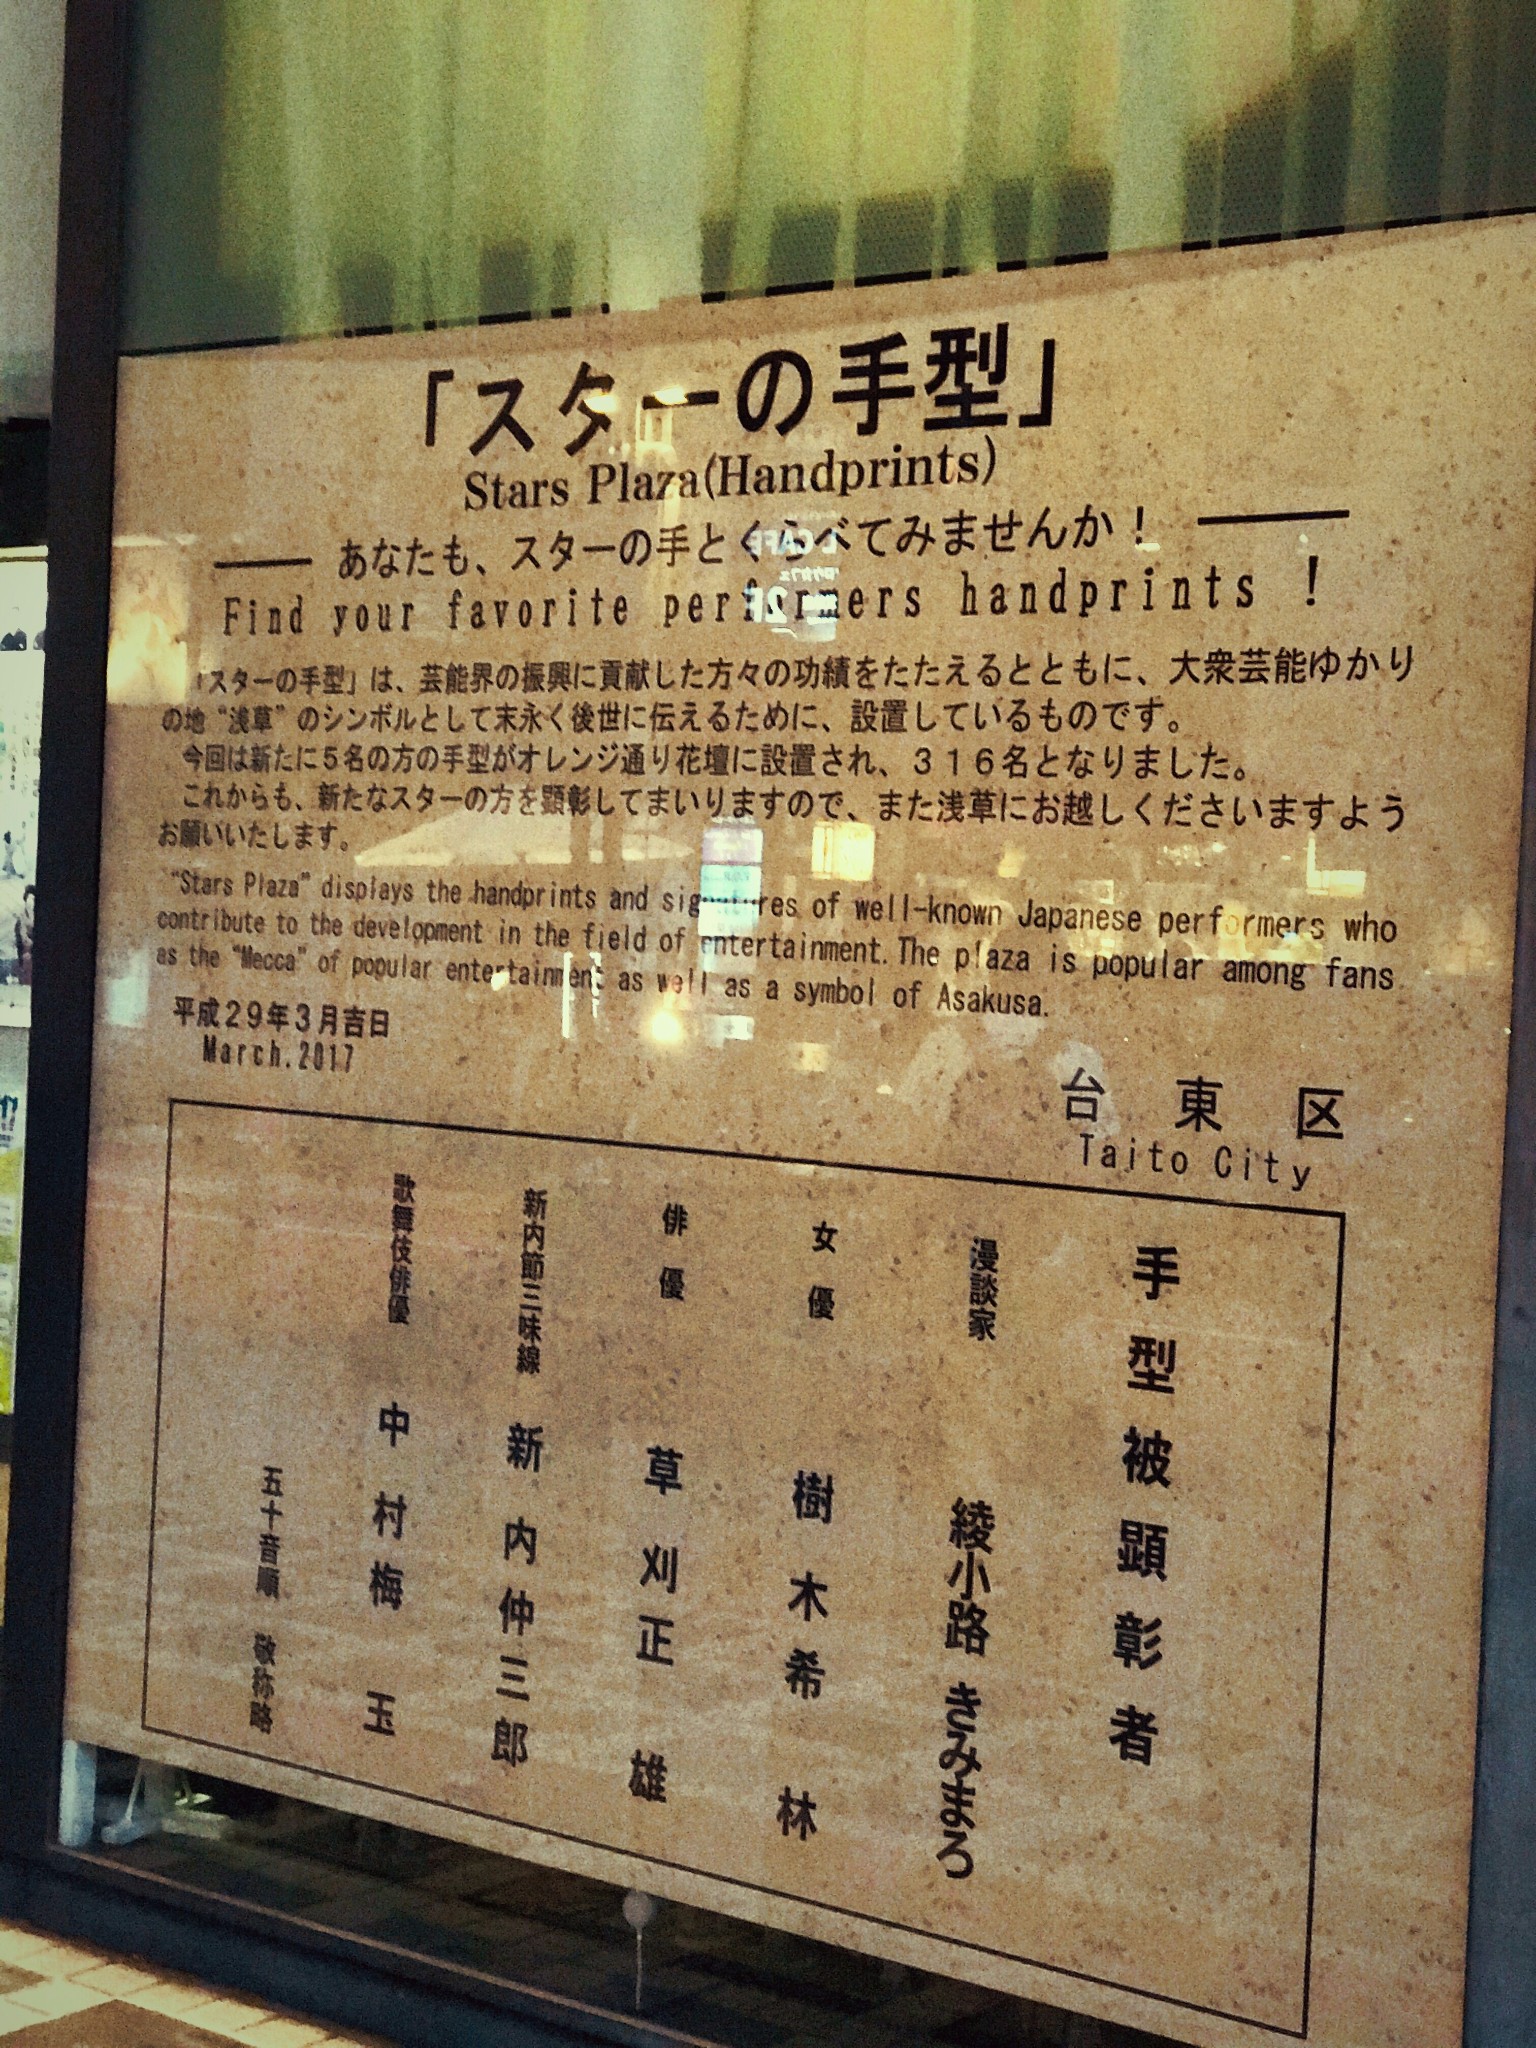 「スターの手型」
Stars Plaza(Handprints)
あなたも、スターの手とくらべてみませんか！
Find your favorite performers handprints !
「スターの手型」は、芸能界の振興に貢献した方々の功績をたたえるとともに、大衆芸能ゆかり
の地“浅草”のシンボルとして末永く後世に伝えるために、設置しているものです。
今回は新たに５名の方の手型がオレンジ通り花壇に設置され、３１６名となりました。
これからも、新たなスターの方を顕彰してまいりますので、また浅草にお越しくださいますよう
お願いいたします。
“Stars Plaza” displays the handprints and signatures of well-known Japanese performers who
contribute to the development in the field of entertainment. The plaza is popular among fans
as the “Mecca” of popular entertainment as well as a symbol of Asakusa.
平成２９年３月吉日
March.2017
台東区
Taito City
手型被顕彰者
漫談家 綾小路きみまろ
女優 樹木希林
俳優 草刈正雄
新内節三味線 新内仲三郎
歌舞伎俳優 中村梅玉
五十音順 敬称略